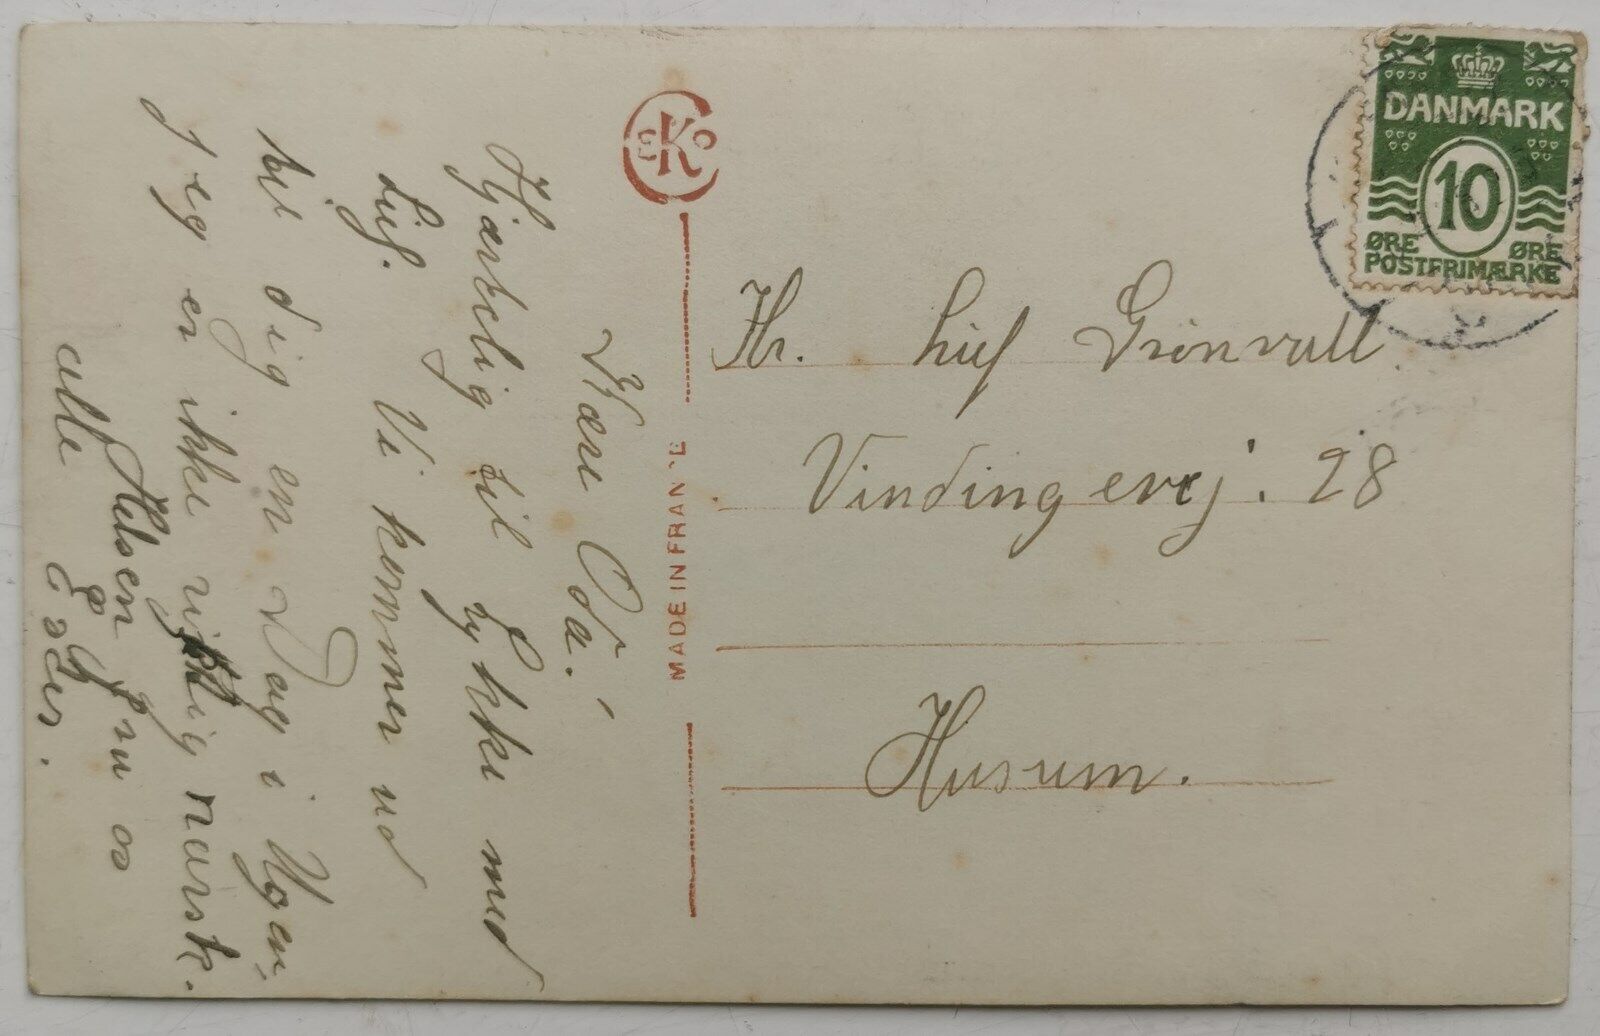 Kære Oda.!
Hjærtelig til Lykke med
Leif. Vi kommer ud
til dig en Dag i Ugen,
Jeg er ikke rigtig rask.
Hilsen fra os
alle Ester.
EKO
MADE IN FRANCE
DANMARK
10
ØRE ØRE
POSTFRIMÆRKE
Hr. Leif Grönvall
Vindingevej. 28
Husum.